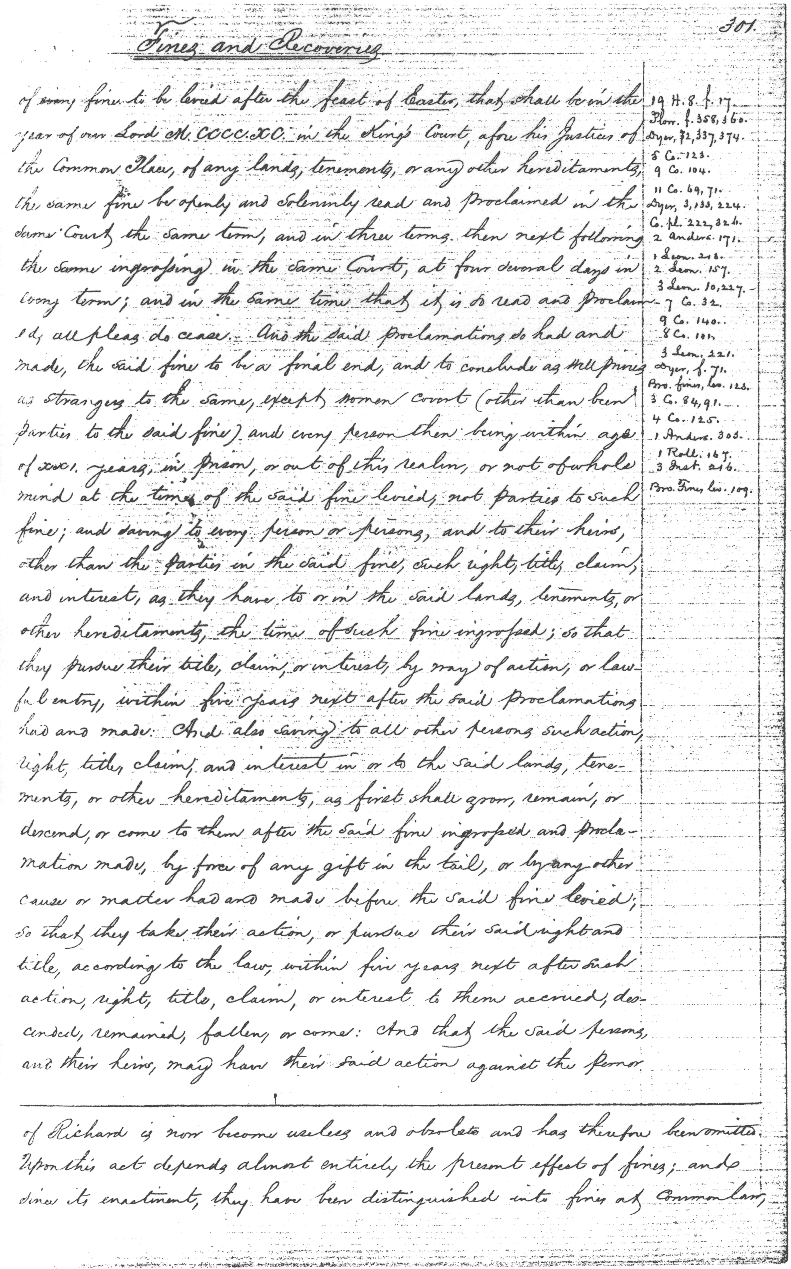 301.
Fines and Recoveries
of every fine to be levied after the feast of Easter, that shall be in the
year of our Lord M.CCCC.XC. in the King's Court, afore his Justices of
the Common Place, of any lands, tenements, or any other hereditaments,
the same fine be openly and solemnly read and proclaimed in the
same Court the same term, and in three terms then next following
the same ingrossing in the same Court, at four several days in
every term; and in the same time that it is so read and proclaim-
ed, all pleas do cease. And the said proclamations so had and
made, the said fine to be a final end, and to conclude as well privies
as strangers to the same, except women covert (other than been
parties to the said fine) and every person then being within age
of xxi. years, in prison, or out of this realm, or not of whole
mind at the time of the said fine levied, not parties to such
fine; and saving to every person or persons, and to their heirs,
other than the parties in the said fine, such right, title, claim,
and interest, as they have to or in the said lands, tenements, or
other hereditaments, the time of such fine ingrossed; so that
they pursue their title, claim, or interest, by way of action, or law-
ful entry, within five years next after the said proclamations
had and made: And also saving to all other persons such action,
right, title, claim, and interest in or to the said lands, tene-
ments, or other hereditaments, as first shall grow, remain, or
descend, or come to them after the said fine ingrossed and procla-
mation made, by force of any gift in the tail, or by any other
cause or matter had and made before the said fine levied;
so that they take their action, or pursue their said right and
title, according to the law, within five years next after such
action, right, title, claim, or interest to them accrued, des-
cended, remained, fallen, or come: And that the said persons,
and their heirs, may have their said action against the pernor
19 H. 8. f. 17.
Plow. f. 358, 360.
Dyer, 72, 337, 374.
5 Co. 123.
9 Co. 104.
11 Co. 69, 71.
Dyer, 3, 133, 224.
Co. pl. 222, 326.
2 Anders. 171.
1 Leon. 213.
2 Leon. 157.
3 Leon. 10, 227.
7 Co. 32.
9 Co. 140.
8 Co. 101.
3 Leon. 221.
Dyer, f. 71.
Bro. fines, lev. 123.
3 Co. 84, 91.
4 Co. 125.
1 Anders. 303.
1 Roll. 167.
3 Inst. 216.
Bro. Fines lev. 109.
of Richard is now become useless and obsolete and has therefore been omitted.
Upon this act depends almost entirely the present effect of fines; and
since its enactment, they have been distinguished into fines at common law,